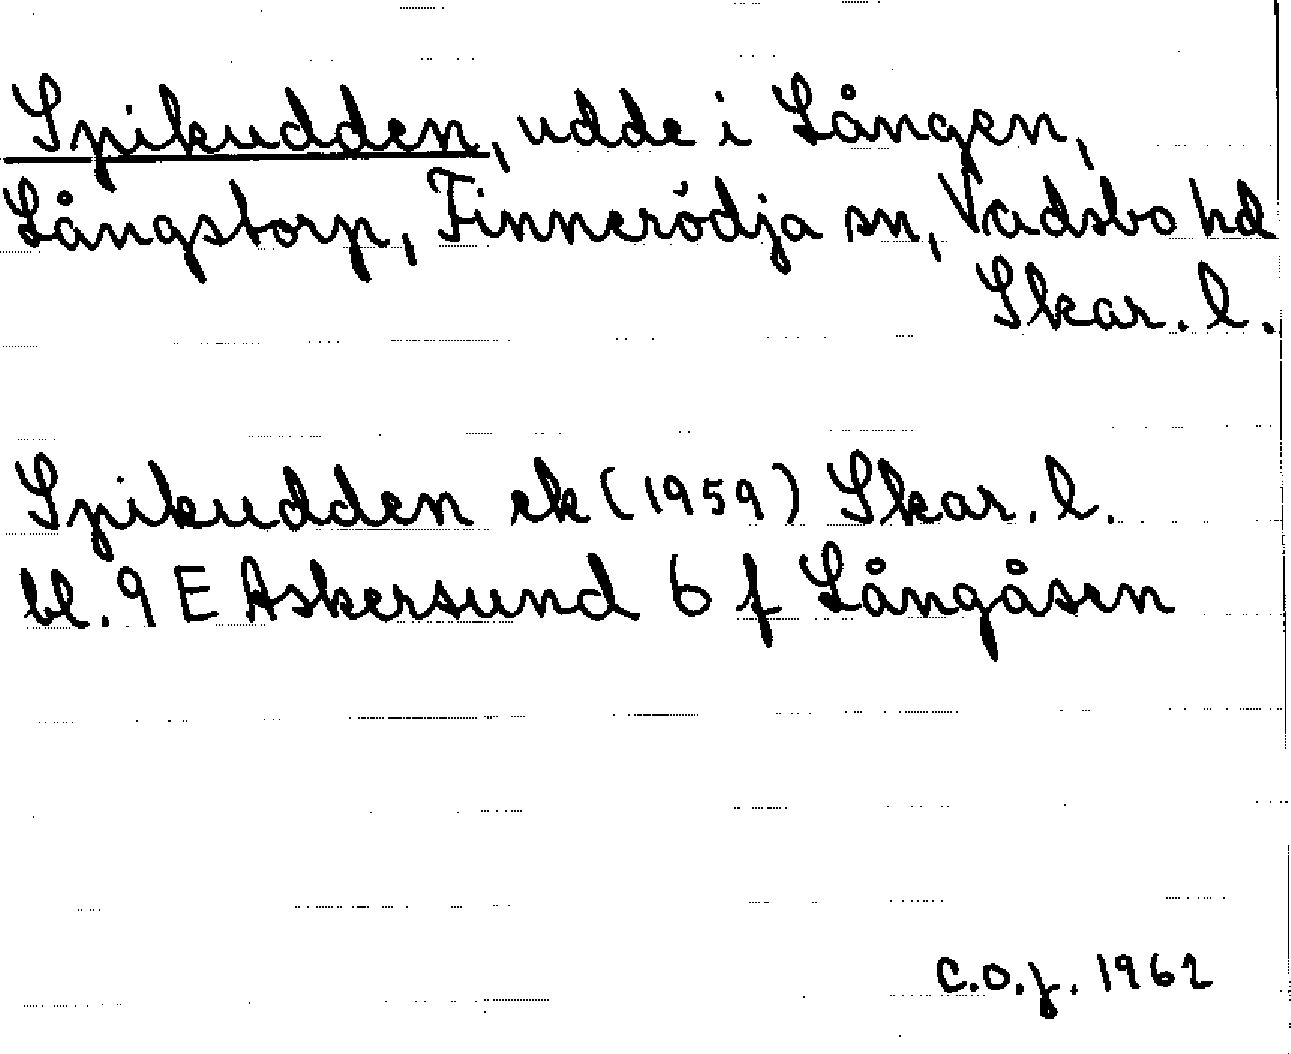 Spikudden, udde i Lången,
Långstorp, Finnerödja sn, Vadsbo hd
Skar. l.
Spikudden ek (1959) Skar. l.
bl. 9 E Askersund 6 f Långåsen
C.O.J. 1962